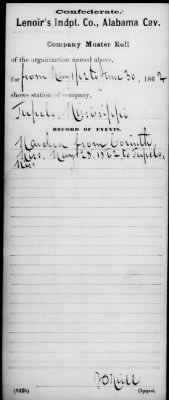 Confederate.
Lenoir's Indpt. Co., Alabama Cav.
Company Muster Roll
of the organization named above,
for from May 12 to June 30, 1862
shows station of company,
Tupelo, Mississippi
RECORD OF EVENTS.
Marched from Corinth,
Miss. May 29. 1862 to Tupelo,
Miss
(642b)
Copyist.